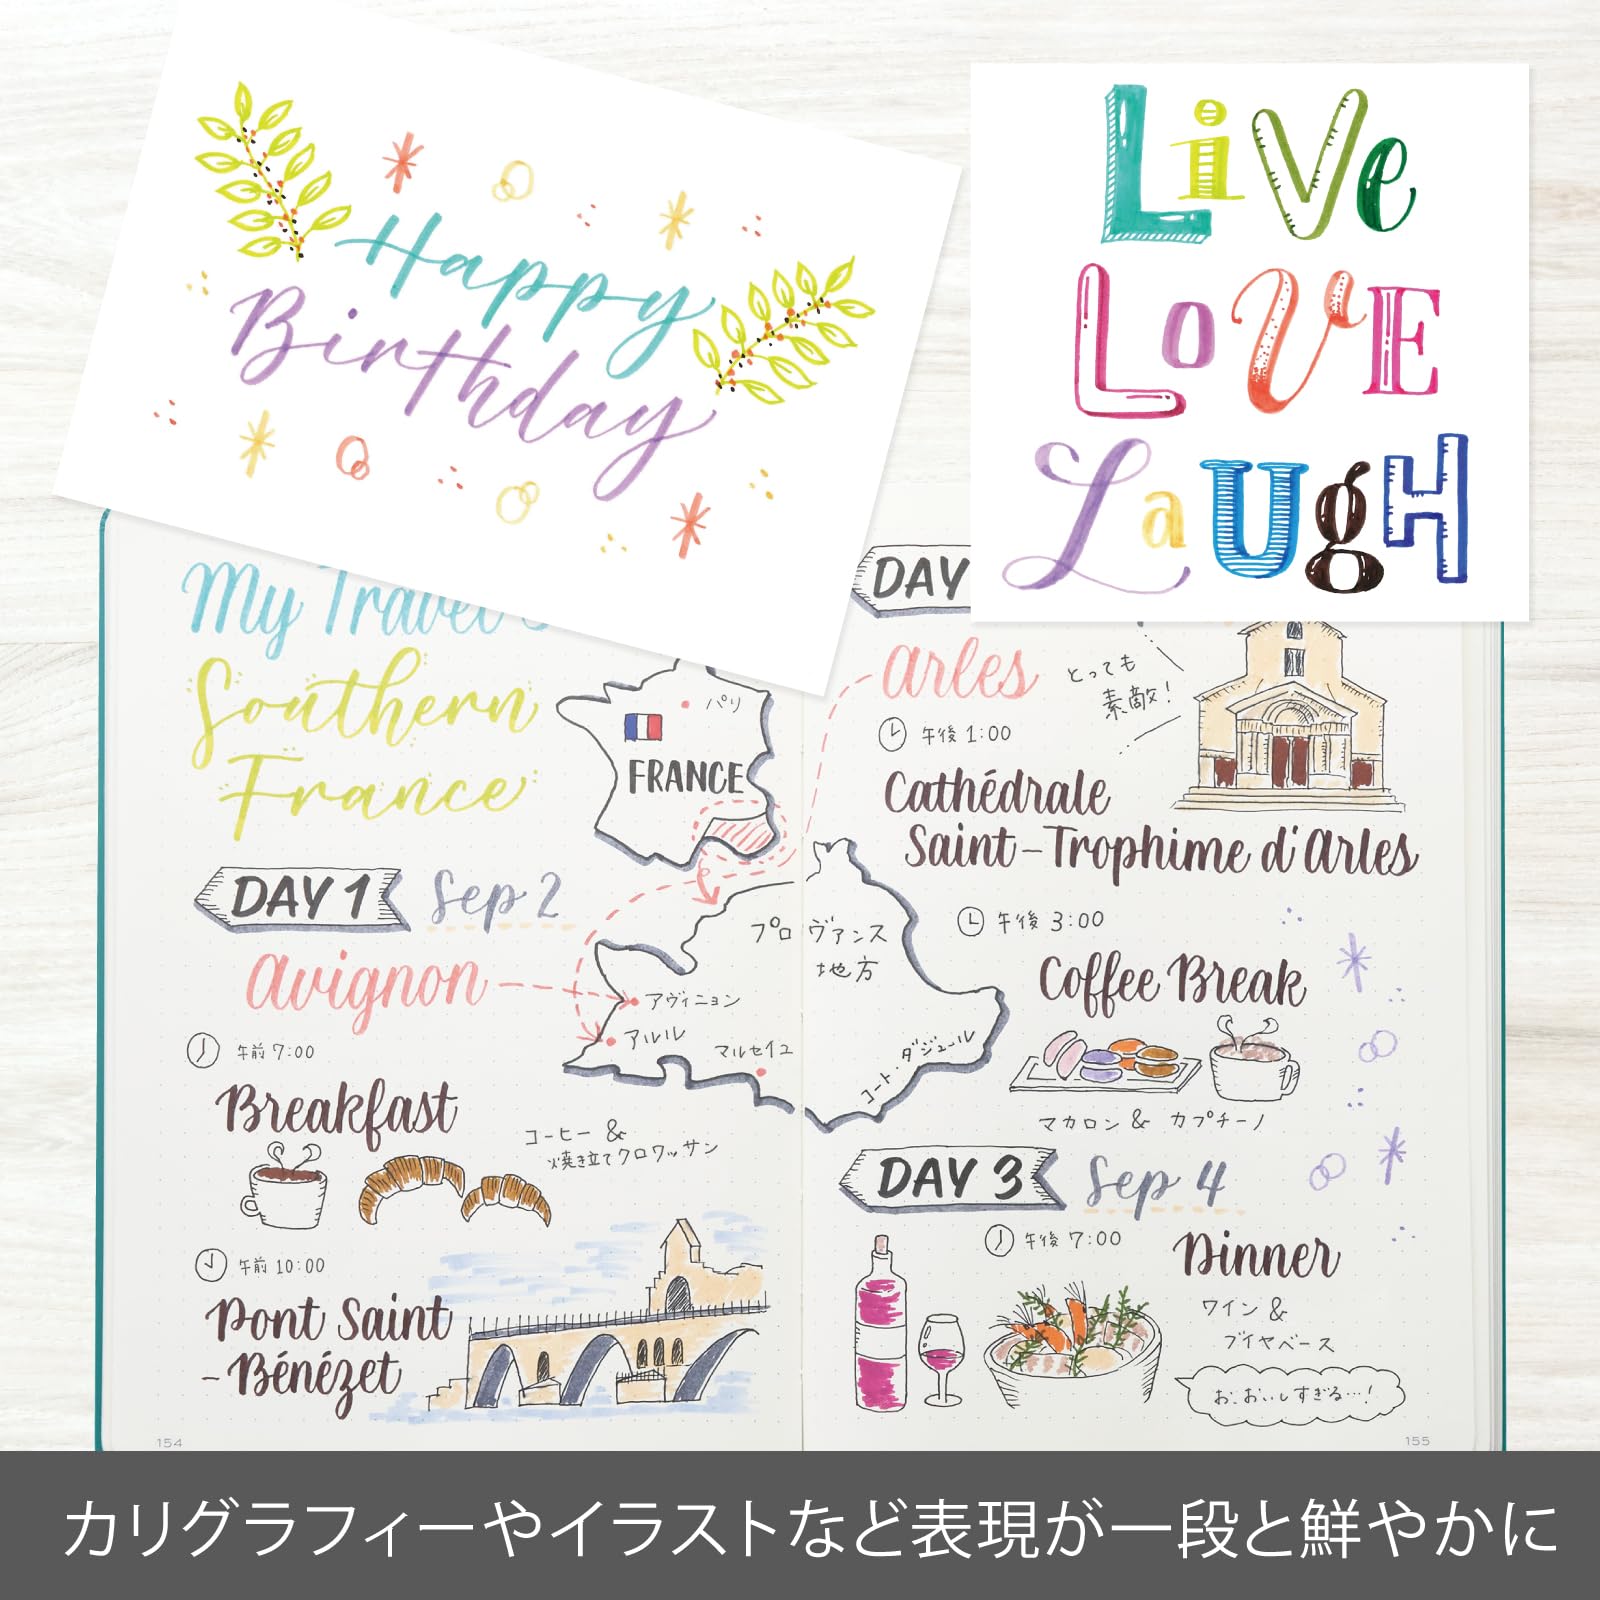 Happy
Birthday
Live
LOVE
LaugH
My Travel
Southern
France
パリ
FRANCE
DAY 1 Sep 2
avignon
午前 7:00
Breakfast
コーヒー &
焼き立てクロワッサン
午前 10:00
Pont Saint
-Bénézet
プロヴァンス
地方
アヴィニョン
アルル
マルセイユ
コート・ダジュール
154
DAY
arles
とっても
素敵!
午後 1:00
Cathédrale
Saint-Trophime d'arles
午後 3:00
Coffee Break
マカロン & カプチーノ
DAY 3 Sep 4
午後 7:00
Dinner
ワイン &
ブイヤベース
お、おいしすぎる…!
155
カリグラフィーやイラストなど表現が一段と鮮やかに